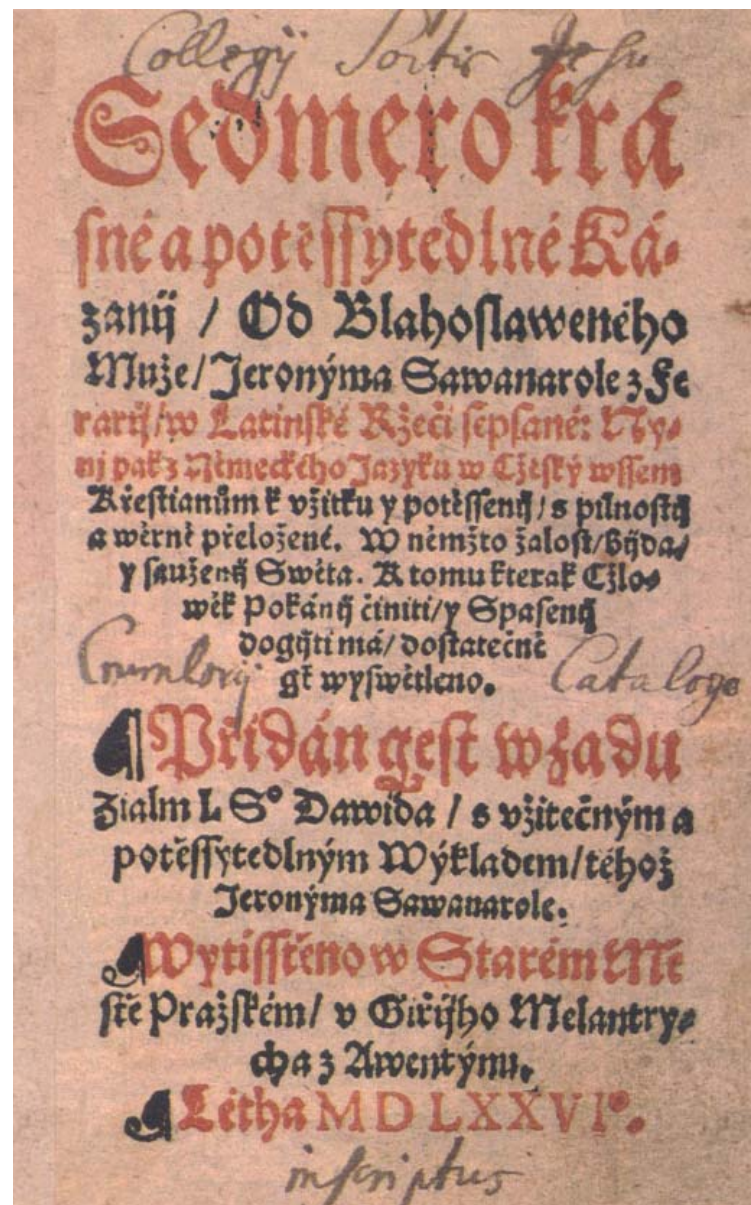 Collegij Soctis Jesu
Sedmero krá
sné a potěssytedlné Ká-
zanij / Od Blahoslaweného
Muže / Jeronýma Sawanarole z Fe
rarij / w Latinské Ržeči sepsané: Ny-
ni pak z Německého Jazyku w Cžeský wssem
Křestianům k vžitku y potěssenij / s pilnostij
a wěrně přeložené. W němžto žalost / Bijda /
y saužený Swěta. K tomu kterak Cžlo-
wěk Pokánij činiti / y Spasenij
dogijti má / dostatečně
Crumlovij gt wyswětleno. Catalogo
Přidán gest wzadu
Žialm L Sº Dawida / s vžitečným a
potěssytedlným Wýkladem / téhož
Jeronýma Sawanarole.
Wytisstěno w Starém Mě
stě Pražském / v Giřijho Melantry-
cha z Awentýnu.
Létha MDLXXVIº.
inscriptus